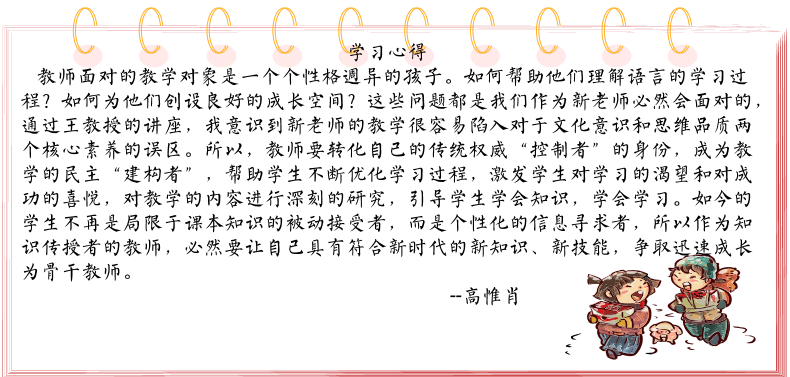 学习心得
教师面对的教学对象是一个个性格迥异的孩子。如何帮助他们理解语言的学习过
程？如何为他们创设良好的成长空间？这些问题都是我们作为新老师必然会面对的，
通过王教授的讲座，我意识到新老师的教学很容易陷入对于文化意识和思维品质两
个核心素养的误区。所以，教师要转化自己的传统权威“控制者”的身份，成为教
学的民主“建构者”，帮助学生不断优化学习过程，激发学生对学习的渴望和对成
功的喜悦，对教学的内容进行深刻的研究，引导学生学会知识，学会学习。如今的
学生不再是局限于课本知识的被动接受者，而是个性化的信息寻求者，所以作为知
识传授者的教师，必然要让自己具有符合新时代的新知识、新技能，争取迅速成长
为骨干教师。
--高惟肖